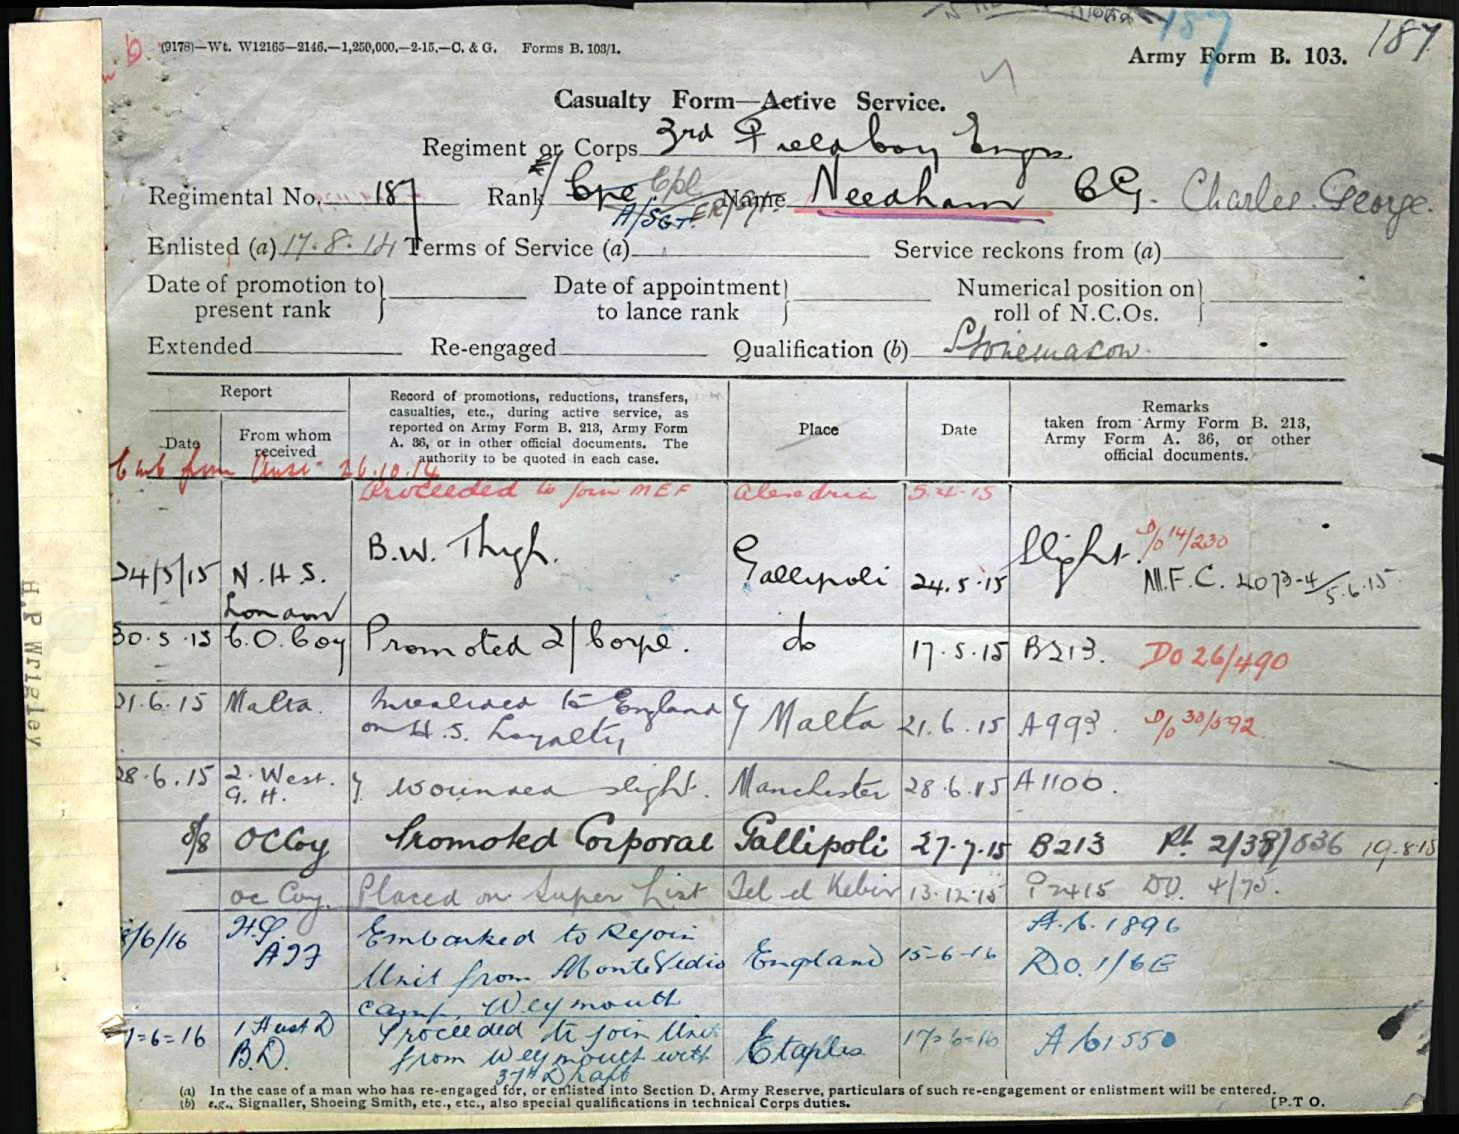 187
187
(9178)—Wt. W12165—2146.—1,250,000.—2-15.—C. & G. Forms B. 103/1.
Army Form B. 103.
Casualty Form—Active Service.
Regiment or Corps 3rd Field Coy Engrs
Regimental No. 187 Rank Cpl Cpl Name Needham C G. Charles George.
A/SGT. ER/Sgt.
Enlisted (a) 17.8.14 Terms of Service (a) Service reckons from (a)
Date of promotion to Date of appointment Numerical position on
present rank to lance rank roll of N.C.Os.
Extended Re-engaged Qualification (b) Stonemason.
Report
Date
From whom
received
Record of promotions, reductions, transfers,
casualties, etc., during active service, as
reported on Army Form B. 213, Army Form
A. 36, or in other official documents. The
authority to be quoted in each case.
Place
Date
Remarks
taken from Army Form B. 213,
Army Form A. 36, or other
official documents.
Emb from Aust 26.10.14
Proceeded to join MEF Alexdria 5.4.15
24/5/15 N.H.S. B.W. Thigh. Gallipoli 24.5.15 Slight. D/o 14/230
M.F.C. 4073-4/5.6.15
30.5.15 C.O. Coy Promoted 2/Corpl. do 17.5.15 B213. DO 26/490
21.6.15 Malta. Invalided to England Malta 21.6.15 A993. D/o 30/592
on H.S. Loyalty
28.6.15 2. West. wounded slight. Manchester 28.6.15 A1100.
G. H.
8/8 OC Coy Promoted Corporal Gallipoli 27.7.15 B213 19.8.15
oc Coy. Placed on Super List Tel el Kebir 13.12.15 P2415 DO. 4/75.
8/6/16 AIF Embarked to Rejoin England 15-6-16 A.6.1896
Unit from MonteVidio DO. 1/6E
camp, Weymouth
7=6=16 1 Aust D Proceeded to join Unit Etaples 17=6=16 A61550
B.D. from Weymouth with
37th Draft
(a) In the case of a man who has re-engaged for, or enlisted into Section D, Army Reserve, particulars of such re-engagement or enlistment will be entered.
(b) e.g., Signaller, Shoeing Smith, etc., etc., also special qualifications in technical Corps duties.
[P.T O.
H.P Wrigley